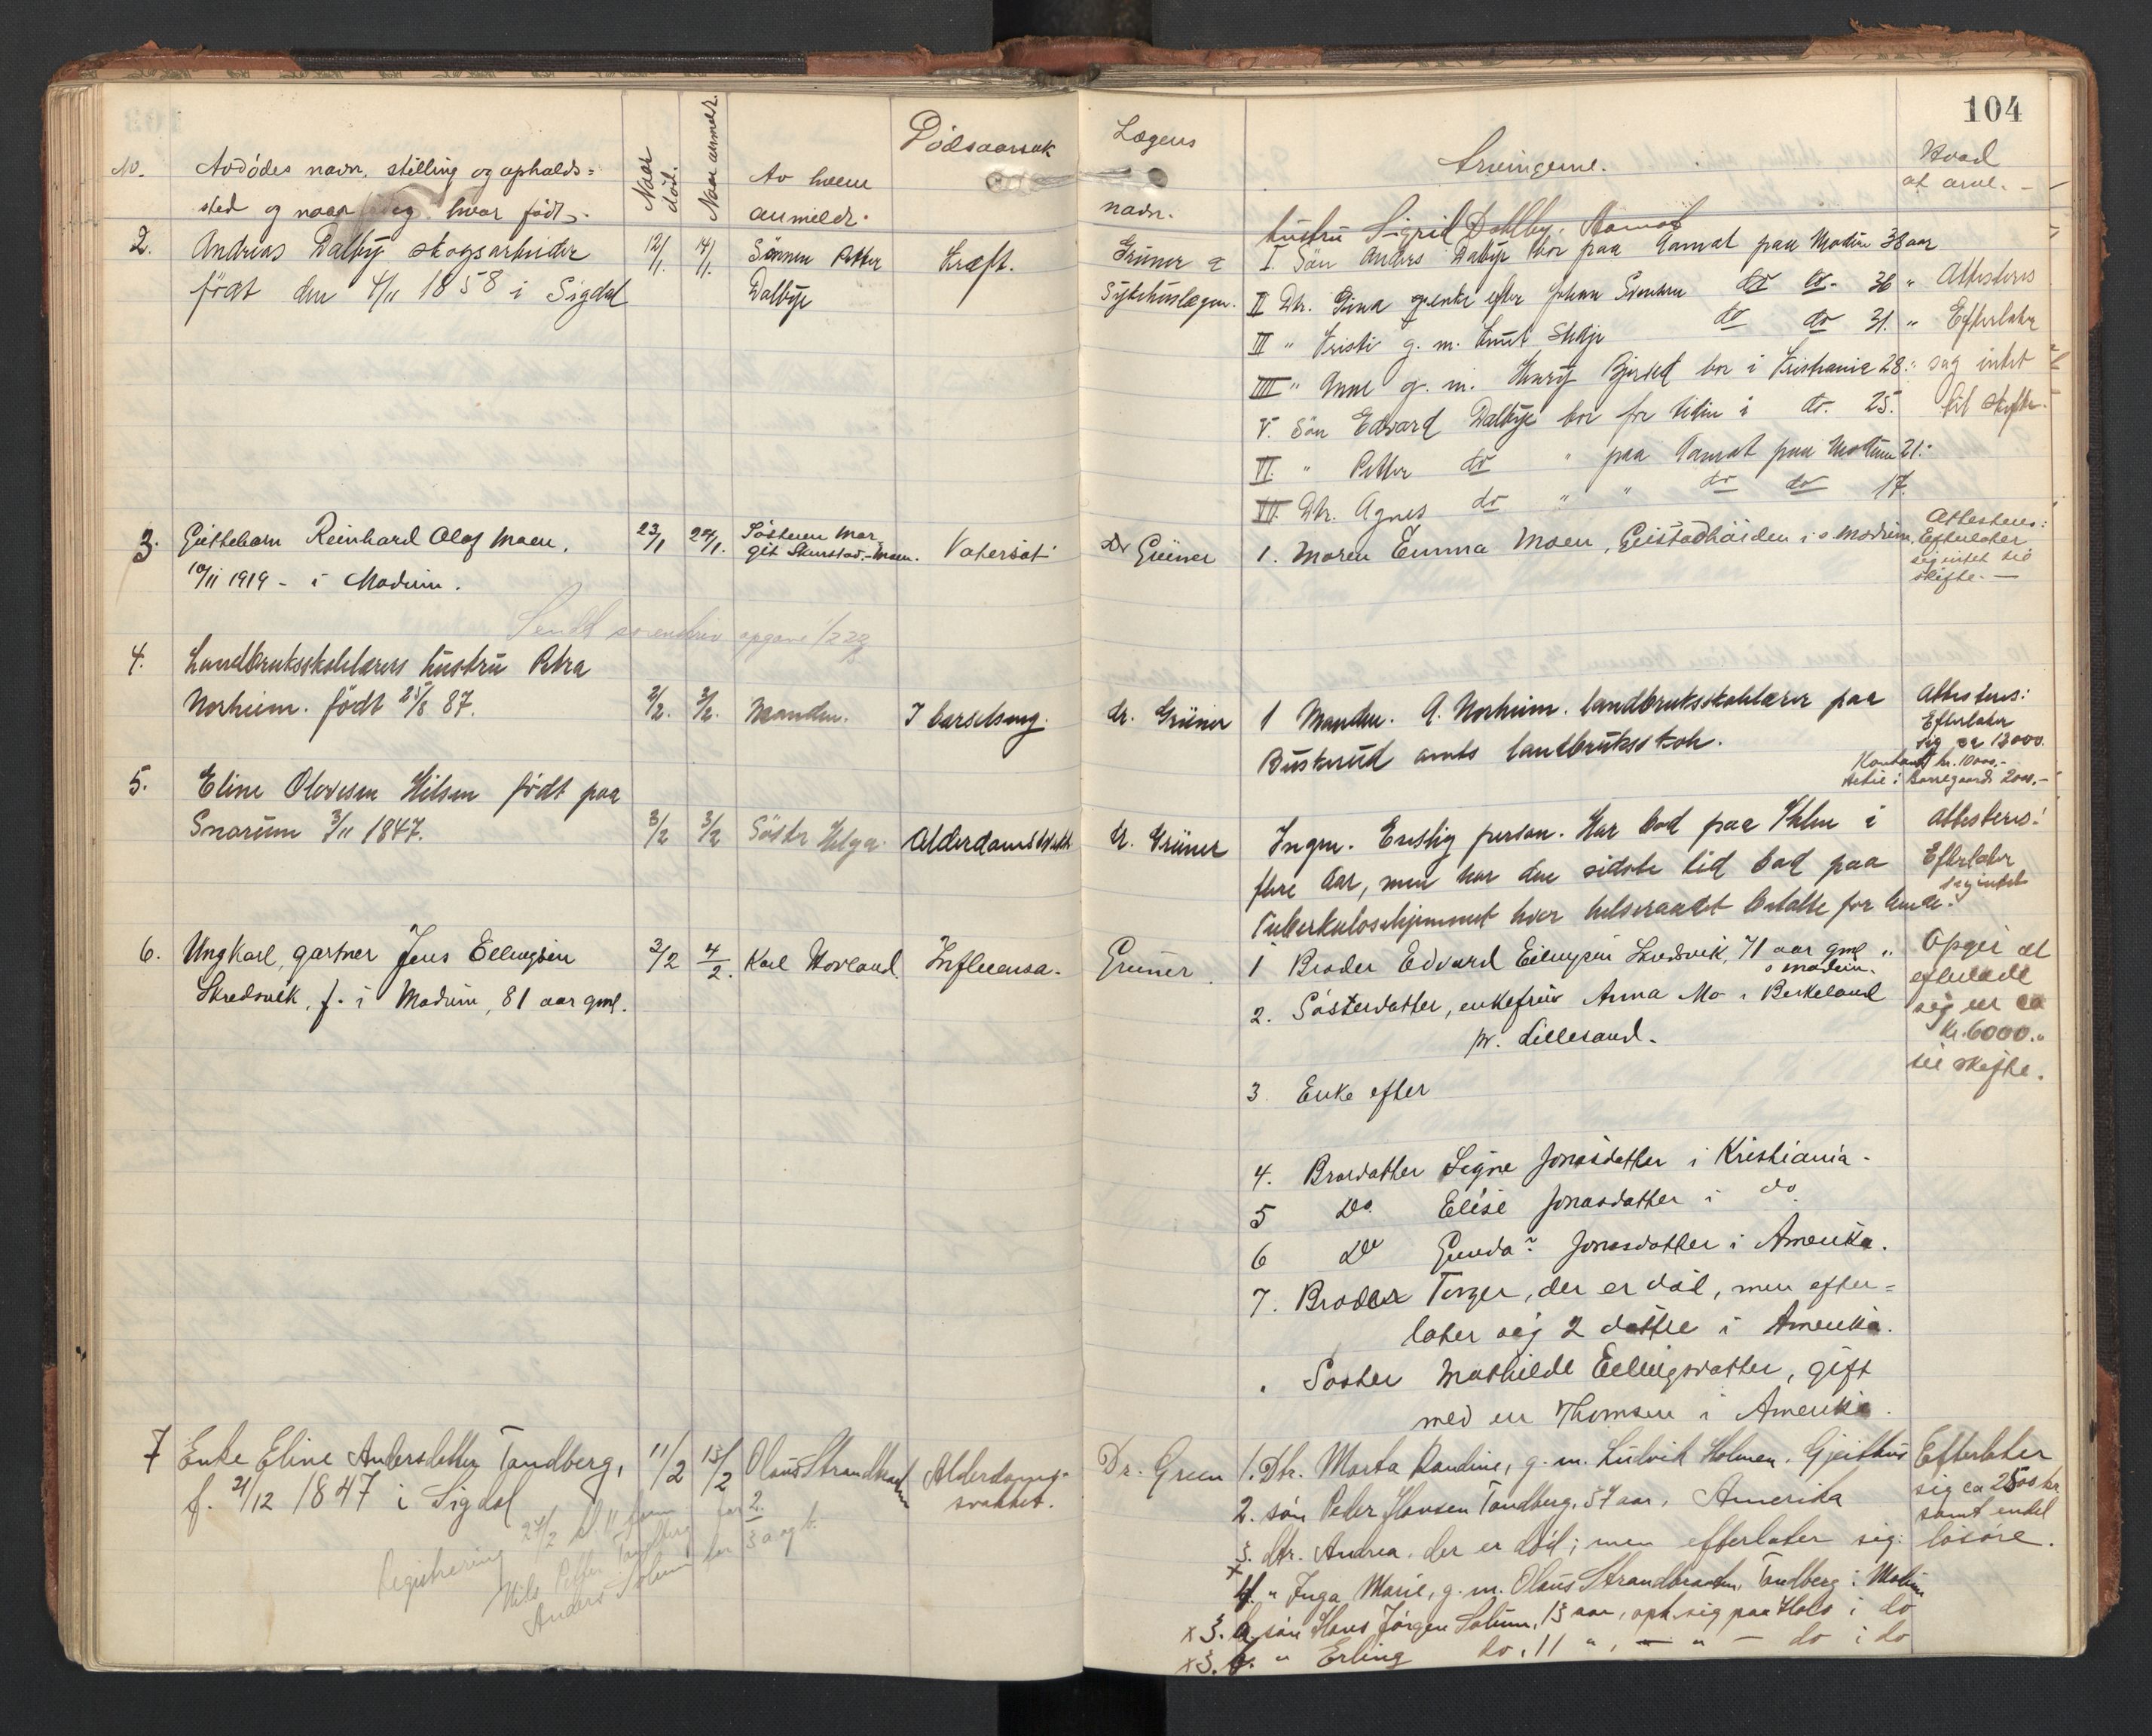 104
No.
Avdödes navn, stilling og opholds=
sted og naar og hvor født.
Naar død.
Naar anmel.
Av hvem
anmeldt.
Dödsaarsak
Lægens
navn.
Arvingerne.
Hvad
at arve. -
2.
Andreas Dalby skogsarbeider
født den 4/11 1858 i Sigdal
12/1.
14/1.
Sønnen Petter
Dalby
Kræft.
Grüner &
Sykehuslægen.
hustru Sigrid Dahlby. Aamot
I. Sön Anders Dalby bor paa Aamot paa Modum 38 aar
II Dtr. Gina enke efter Johan do do - 36 "
III " Kristi g. m. Knut do do 31. "
IIII " Anne g. m. Henry bor i Kristiania 28 "
V. Sön Edvard Dalby bor for tiden i do. 25.
VI. " Petter do " paa Aamot paa Modum 21.
VII. Dtr. Agnes do " " do do 17.
Attesteres
Efterlater
sig intet
til skifte.
3.
Guttebarn Reinhard Olaf Moen.
10/11 1919 - i Modum.
23/1
24/1.
Söstren Mar
git Skurstad-Moen.
Vatersot
Dr Grüner
1. Moren Emma Moen, Geistadhöiden i s Modum.
Attesteres:
Efterlater
sig intet til
skifte. -
Sendt sorenskriv opgave 1/2 22
4.
Landbruksskolelærers hustru Petra
Norheim. født 25/8 87.
2/2.
3/2.
Manden.
I barselseng.
dr. Grüner
1 Manden. A. Norheim. landbruksskolelærer paa
Buskerud amts landbruksskole.
Attesteres:
Efterlater
sig ca 12000.
Kontant kr. 10000.-
Aktie i Borregaard 2000.-
5.
Eline Olevesen Hilsen født paa
Snarum 3/11 1847.
3/2
3/2
Söster Helga
Alderdomssvakh.
dr. Grüner
Ingen. Enslig person. Har bod paa Vikesund i
flere aar, men har den sidste tid bod paa
Tuberkulosehjemmet hvor helseraadet betalte for hende.
Attesteres!
Efterlater
sig intet
6.
Ungkarl, gartner Jens Ellingsen
Skredsvik, f. i Modum, 81 aar gml.
3/2
4/2.
Karl Hovland
Influensa.
Grüner.
1 Broder Edvard Ellingsen Skredsvik, 71 aar gml "
s Modum.
2. Søsterdatter, enkefrue Anna Mo i Berkeland
pr. Lillesand.
3. Enke efter
4. Brordatter Signe Jonasdatter i Kristiania.
5 Do. Elise Jonasdatter i do.
6 Do Gunda? Jonasdatter i Amerika.
7. Broder Torger, der er död, men efter=
later sig 2 döttre i Amerika.
. Søster Mathilde Ellingsdatter, gift
med en Thomsen i Amerika.
Opgir at
efterlate
sig en ca
kr. 6000.-
til skifte.
7
Enke Eline Andersdatter Tandberg,
f. 21/12 1847 i Sigdal
11/2
13/2
Olaus Strandbraaten
Alderdoms-
svakhet.
Registrering 24/2 kl 11 form
Nils Petter Tandberg for 2.
Anders Solum for 3 a og b.
Dr. Green
1. Dtr. Marta Pauline, g. m. Ludvik Holmen. Gjeithus
2. sön Peder Hansen Tandberg, 57 aar, Amerika
3. dtr. Andrea. der er död; men efterlater sig:
x 4. " Inga Marie, g. m. Olaus Strandbraaten, Tandberg i Modum
x 3. a. sön Hans Jörgen Solum, 13 aar, oph. sig paa Hols i do
x 3. b. " Erling do, 11 ", - " - do i do
Efterlater
sig ca 2500 kr
samt endel
lösöre.